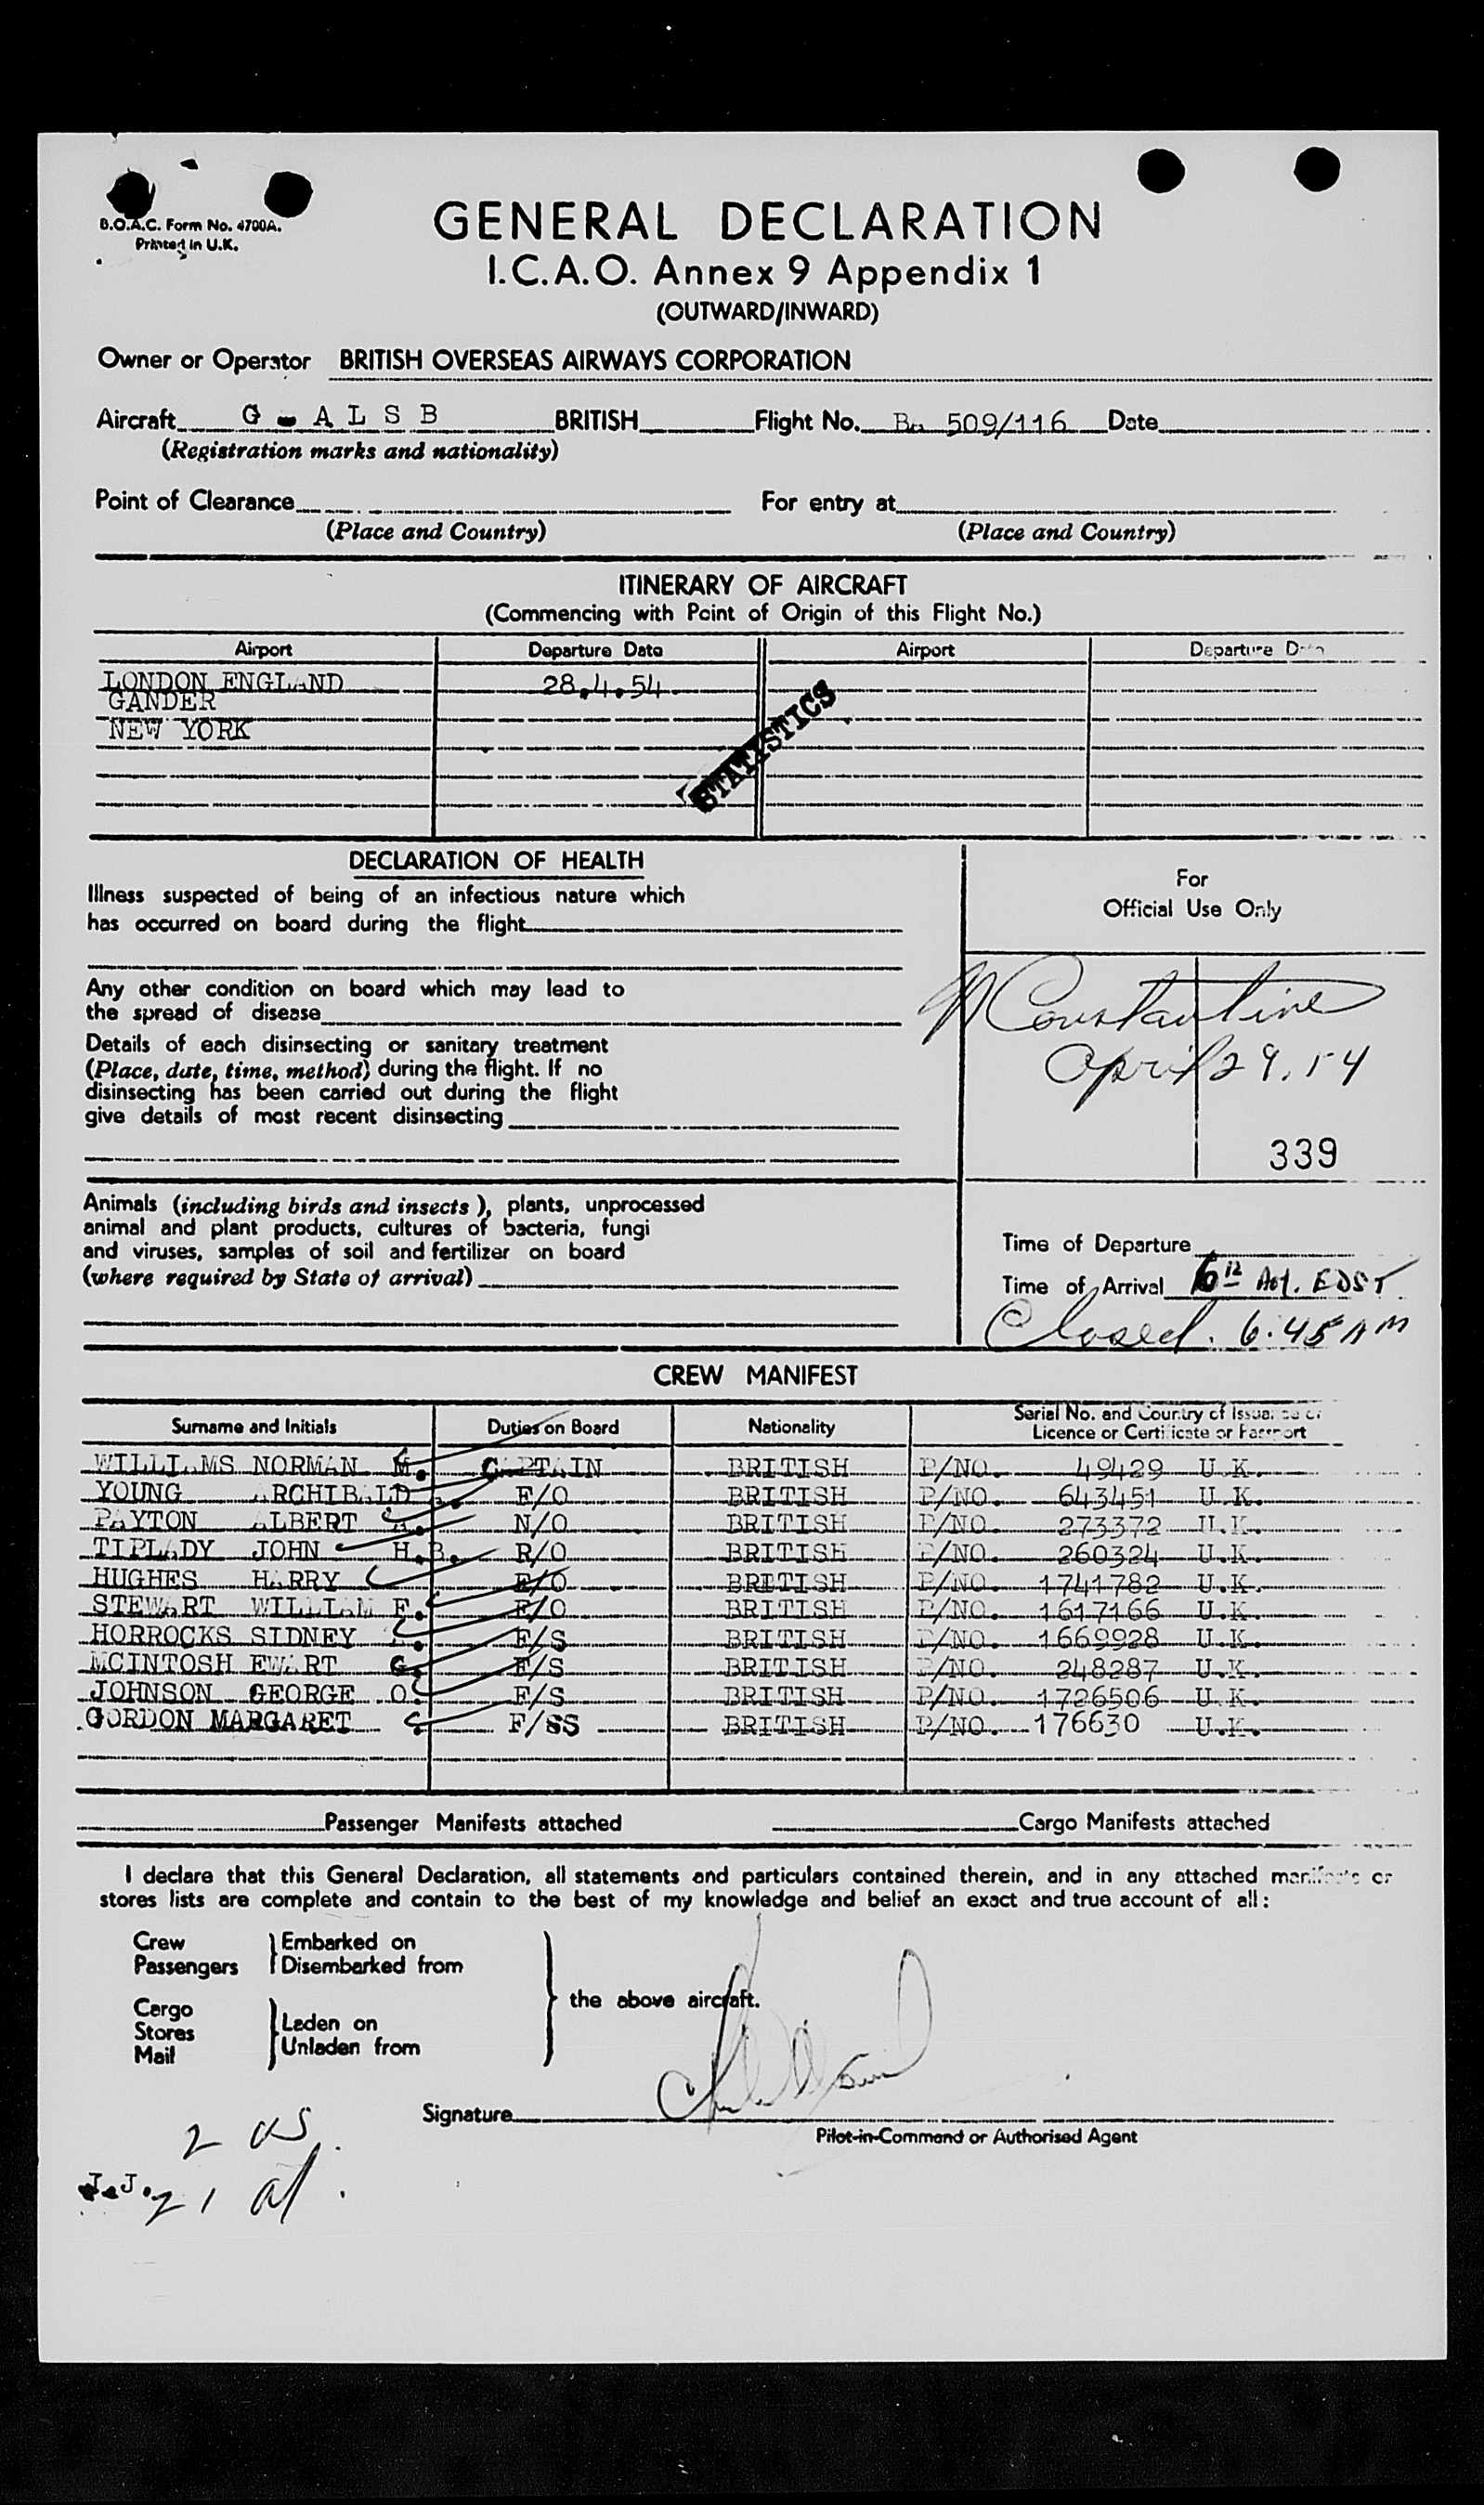 B.O.A.C. Form No. 4700A.
Printed in U.K.
GENERAL DECLARATION
I.C.A.O. Annex 9 Appendix 1
(OUTWARD/INWARD)
Owner or Operator BRITISH OVERSEAS AIRWAYS CORPORATION
Aircraft G - A L S B BRITISH Flight No. 509/116 Date
(Registration marks and nationality)
Point of Clearance For entry at
(Place and Country) (Place and Country)
ITINERARY OF AIRCRAFT
(Commencing with Point of Origin of this Flight No.)
Airport Departure Date Airport Departure Date
LONDON ENGLAND 28.4.54
GANDER
NEW YORK
STATISTICS
DECLARATION OF HEALTH
Illness suspected of being of an infectious nature which
has occurred on board during the flight
Any other condition on board which may lead to
the spread of disease
Details of each disinsecting or sanitary treatment
(Place, date, time, method) during the flight. If no
disinsecting has been carried out during the flight
give details of most recent disinsecting
For
Official Use Only
Constantine
April 29, 54
339
Animals (including birds and insects), plants, unprocessed
animal and plant products, cultures of bacteria, fungi
and viruses, samples of soil and fertilizer on board
(where required by State of arrival)
Time of Departure
Time of Arrival 6 12 AM. EDST
Closed. 6:45 AM
CREW MANIFEST
Surname and Initials Duties on Board Nationality Serial No. and Country of Issuance of
Licence or Certificate or Passport
WILLIAMS NORMAN M. CAPTAIN BRITISH P/NO. 49429 U.K.
YOUNG ARCHIBALD F/O BRITISH P/NO. 643451 U.K.
PAYTON ALBERT N/O BRITISH P/NO. 273372 U.K.
TIPLADY JOHN H.B. R/O BRITISH P/NO. 260324 U.K.
HUGHES HARRY E/O BRITISH P/NO. 1741782 U.K.
STEWART WILLIAM F. E/O BRITISH P/NO. 1617166 U.K.
HORROCKS SIDNEY F/S BRITISH P/NO. 1669928 U.K.
MCINTOSH EWART G. F/S BRITISH P/NO. 248287 U.K.
JOHNSON GEORGE O. F/S BRITISH P/NO. 1726506 U.K.
GORDON MARGARET F/SS BRITISH P/NO. 176630 U.K.
Passenger Manifests attached Cargo Manifests attached
I declare that this General Declaration, all statements and particulars contained therein, and in any attached manifests or
stores lists are complete and contain to the best of my knowledge and belief an exact and true account of all:
Crew
Passengers
Embarked on
Disembarked from
Cargo
Stores
Mail
Laden on
Unladen from
the above aircraft.
Signature
Pilot-in-Command or Authorised Agent
2 us
J.J. 21 al.